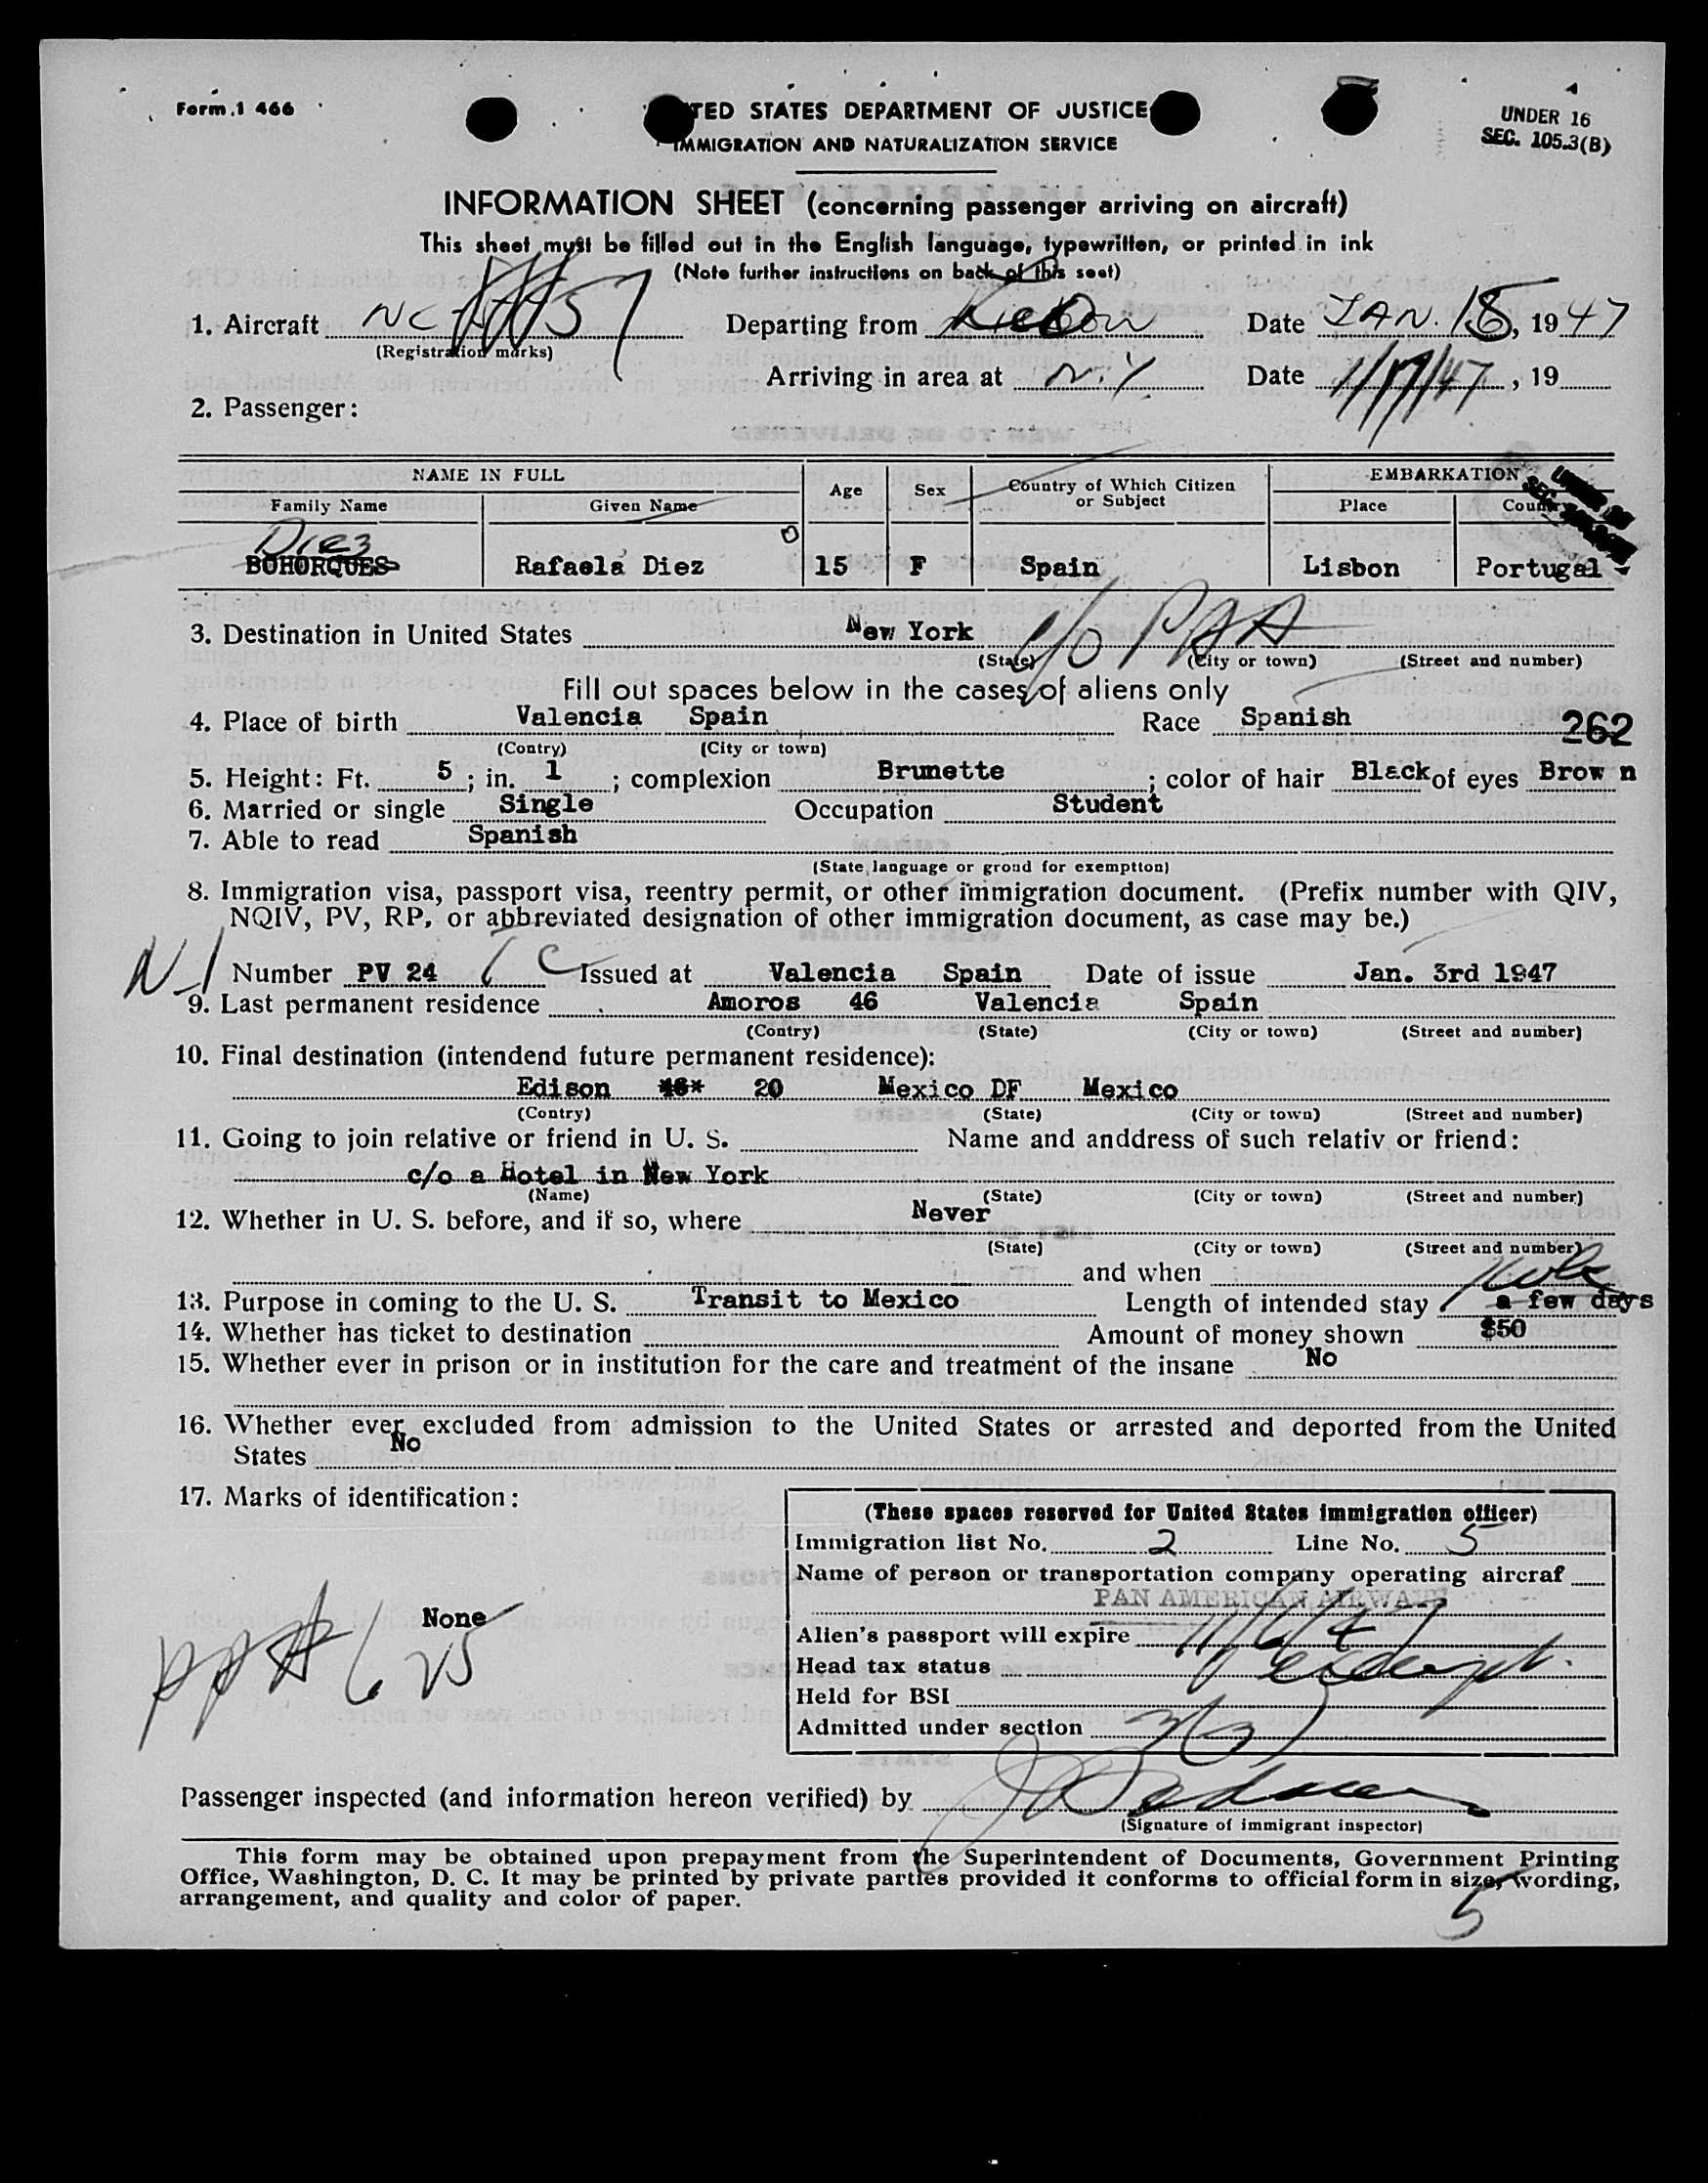 Form.1 466
TED STATES DEPARTMENT OF JUSTICE
UNDER 16
IMMIGRATION AND NATURALIZATION SERVICE
SEC. 105.3(B)
INFORMATION SHEET (concerning passenger arriving on aircraft)
This sheet must be filled out in the English language, typewritten, or printed in ink
(Note further instructions on back of this seet)
1. Aircraft NC Departing from Date JAN. 18, 1947
(Registration marks)
Arriving in area at N.Y. Date 1/17/47, 19
2. Passenger:
NAME IN FULL Age Sex Country of Which Citizen or Subject EMBARKATION
Family Name Given Name Place Country
Diez
BOHORQUES Rafaela Diez 15 F Spain Lisbon Portugal
3. Destination in United States New York c/o PAA
(State) (City or town) (Street and number)
Fill out spaces below in the cases of aliens only
4. Place of birth Valencia Spain Race Spanish 262
(Contry) (City or town)
5. Height: Ft. 5; in. 1; complexion Brunette; color of hair Black of eyes Brow n
6. Married or single Single Occupation Student
7. Able to read Spanish
(State language or groud for exemption)
8. Immigration visa, passport visa, reentry permit, or other immigration document. (Prefix number with QIV,
NQIV, PV, RP, or abbreviated designation of other immigration document, as case may be.)
Number PV 24 TC Issued at Valencia Spain Date of issue Jan. 3rd 1947
9. Last permanent residence Amoros 46 Valencia Spain
(Contry) (State) (City or town) (Street and number)
10. Final destination (intendend future permanent residence):
Edison 46* 20 Mexico DF Mexico
(Contry) (State) (City or town) (Street and number)
11. Going to join relative or friend in U. S. Name and anddress of such relativ or friend:
c/o a Hotel in New York
(Name) (State) (City or town) (Street and number)
12. Whether in U. S. before, and if so, where Never
(State) (City or town) (Street and number)
and when
13. Purpose in coming to the U. S. Transit to Mexico Length of intended stay a few days
14. Whether has ticket to destination Amount of money shown $50
15. Whether ever in prison or in institution for the care and treatment of the insane No
16. Whether ever excluded from admission to the United States or arrested and deported from the United
States No
17. Marks of identification:
None
(These spaces reserved for United States immigration officer)
Immigration list No. 2 Line No. 5
Name of person or transportation company operating aircraf
PAN AMERICAN AIRWAYS
Alien's passport will expire
Head tax status
Held for BSI
Admitted under section
Passenger inspected (and information hereon verified) by
(Signature of immigrant inspector)
This form may be obtained upon prepayment from the Superintendent of Documents, Government Printing
Office, Washington, D. C. It may be printed by private parties provided it conforms to official form in size, wording,
arrangement, and quality and color of paper.
5